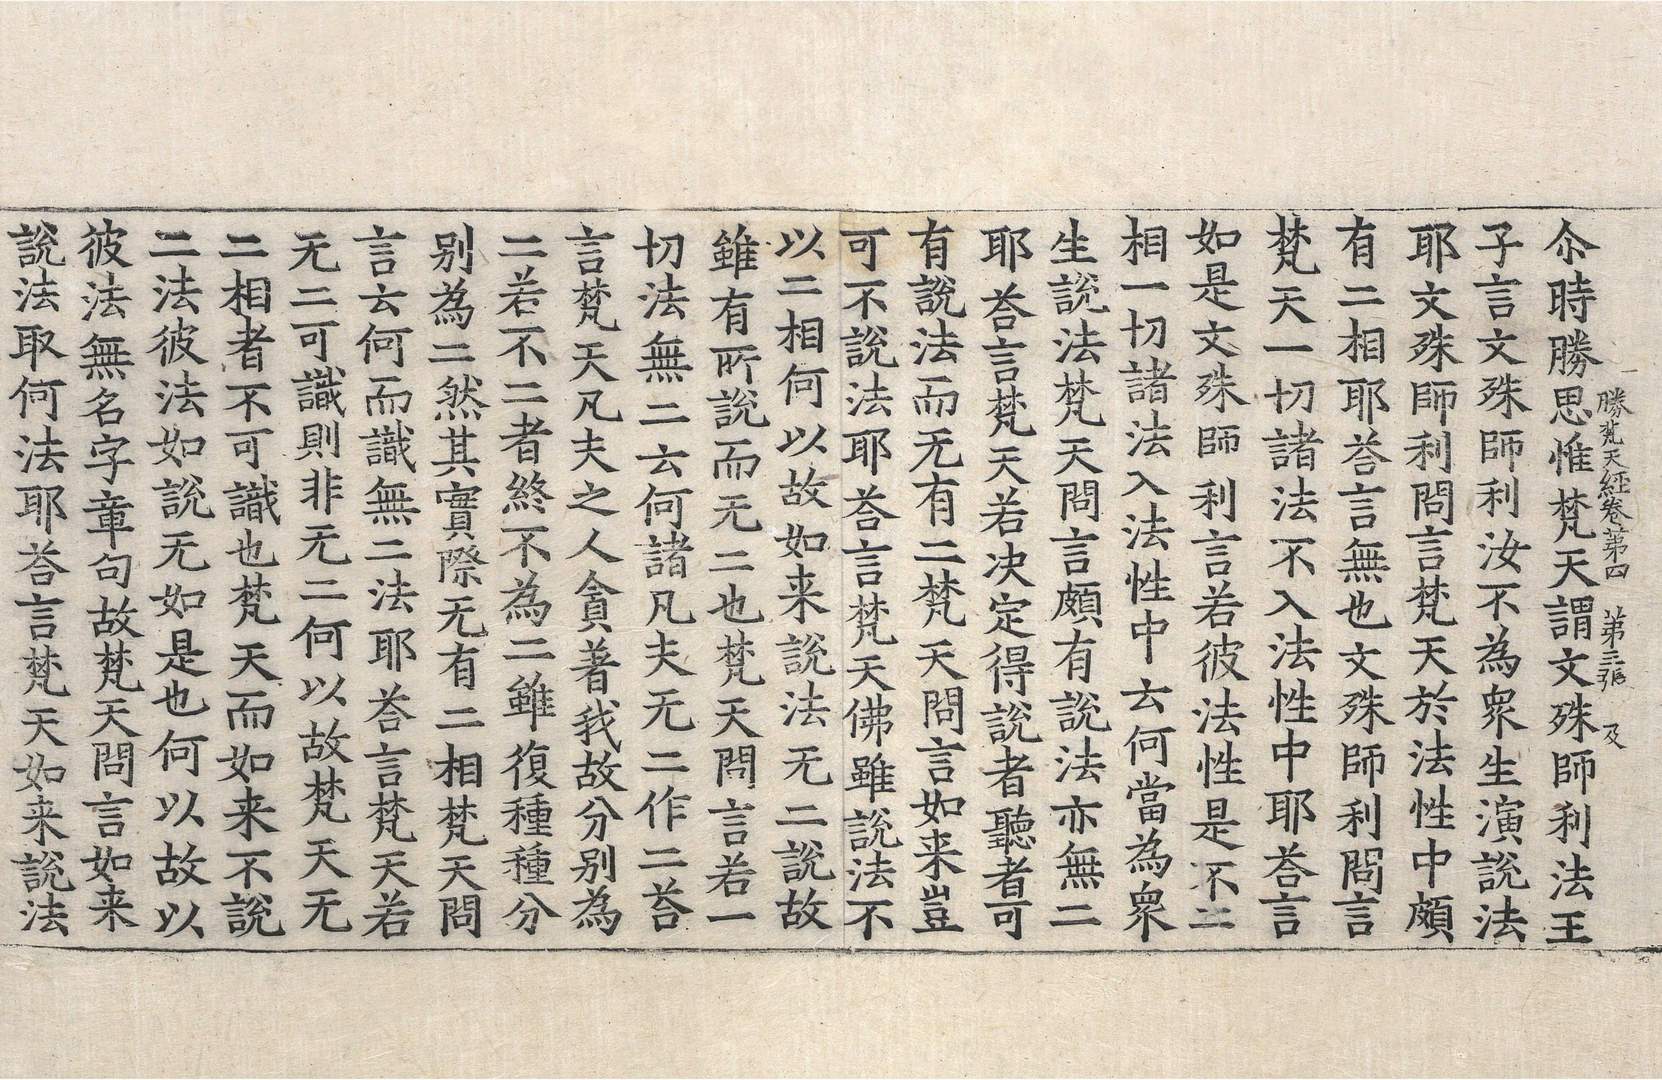 勝梵天経卷第四　第三張　及
尒時勝思惟梵天謂文殊師利法王
子言文殊師利汝不為衆生演說法
耶文殊師利問言梵天於法性中頗
有二相耶荅言無也文殊師利問言
梵天一切諸法不入法性中耶荅言
如是文殊師利言若彼法性是不二
相一切諸法入法性中云何當為衆
生說法梵天問言頗有說法亦無二
耶荅言梵天若决定得說者聽者可
有說法而无有二梵天問言如来豈
可不說法耶荅言梵天佛雖說法不
以二相何以故如来說法无二說故
雖有所說而无二也梵天問言若一
切法無二云何諸凡夫无二作二荅
言梵天凡夫之人貪著我故分別為
二若不二者終不為二雖復種種分
別為二然其實際无有二相梵天問
言云何而識無二法耶荅言梵天若
无二可識則非无二何以故梵天无
二相者不可識也梵天而如来不說
二法彼法如說无如是也何以故以
彼法無名字章句故梵天問言如来
說法取何法耶荅言梵天如来說法